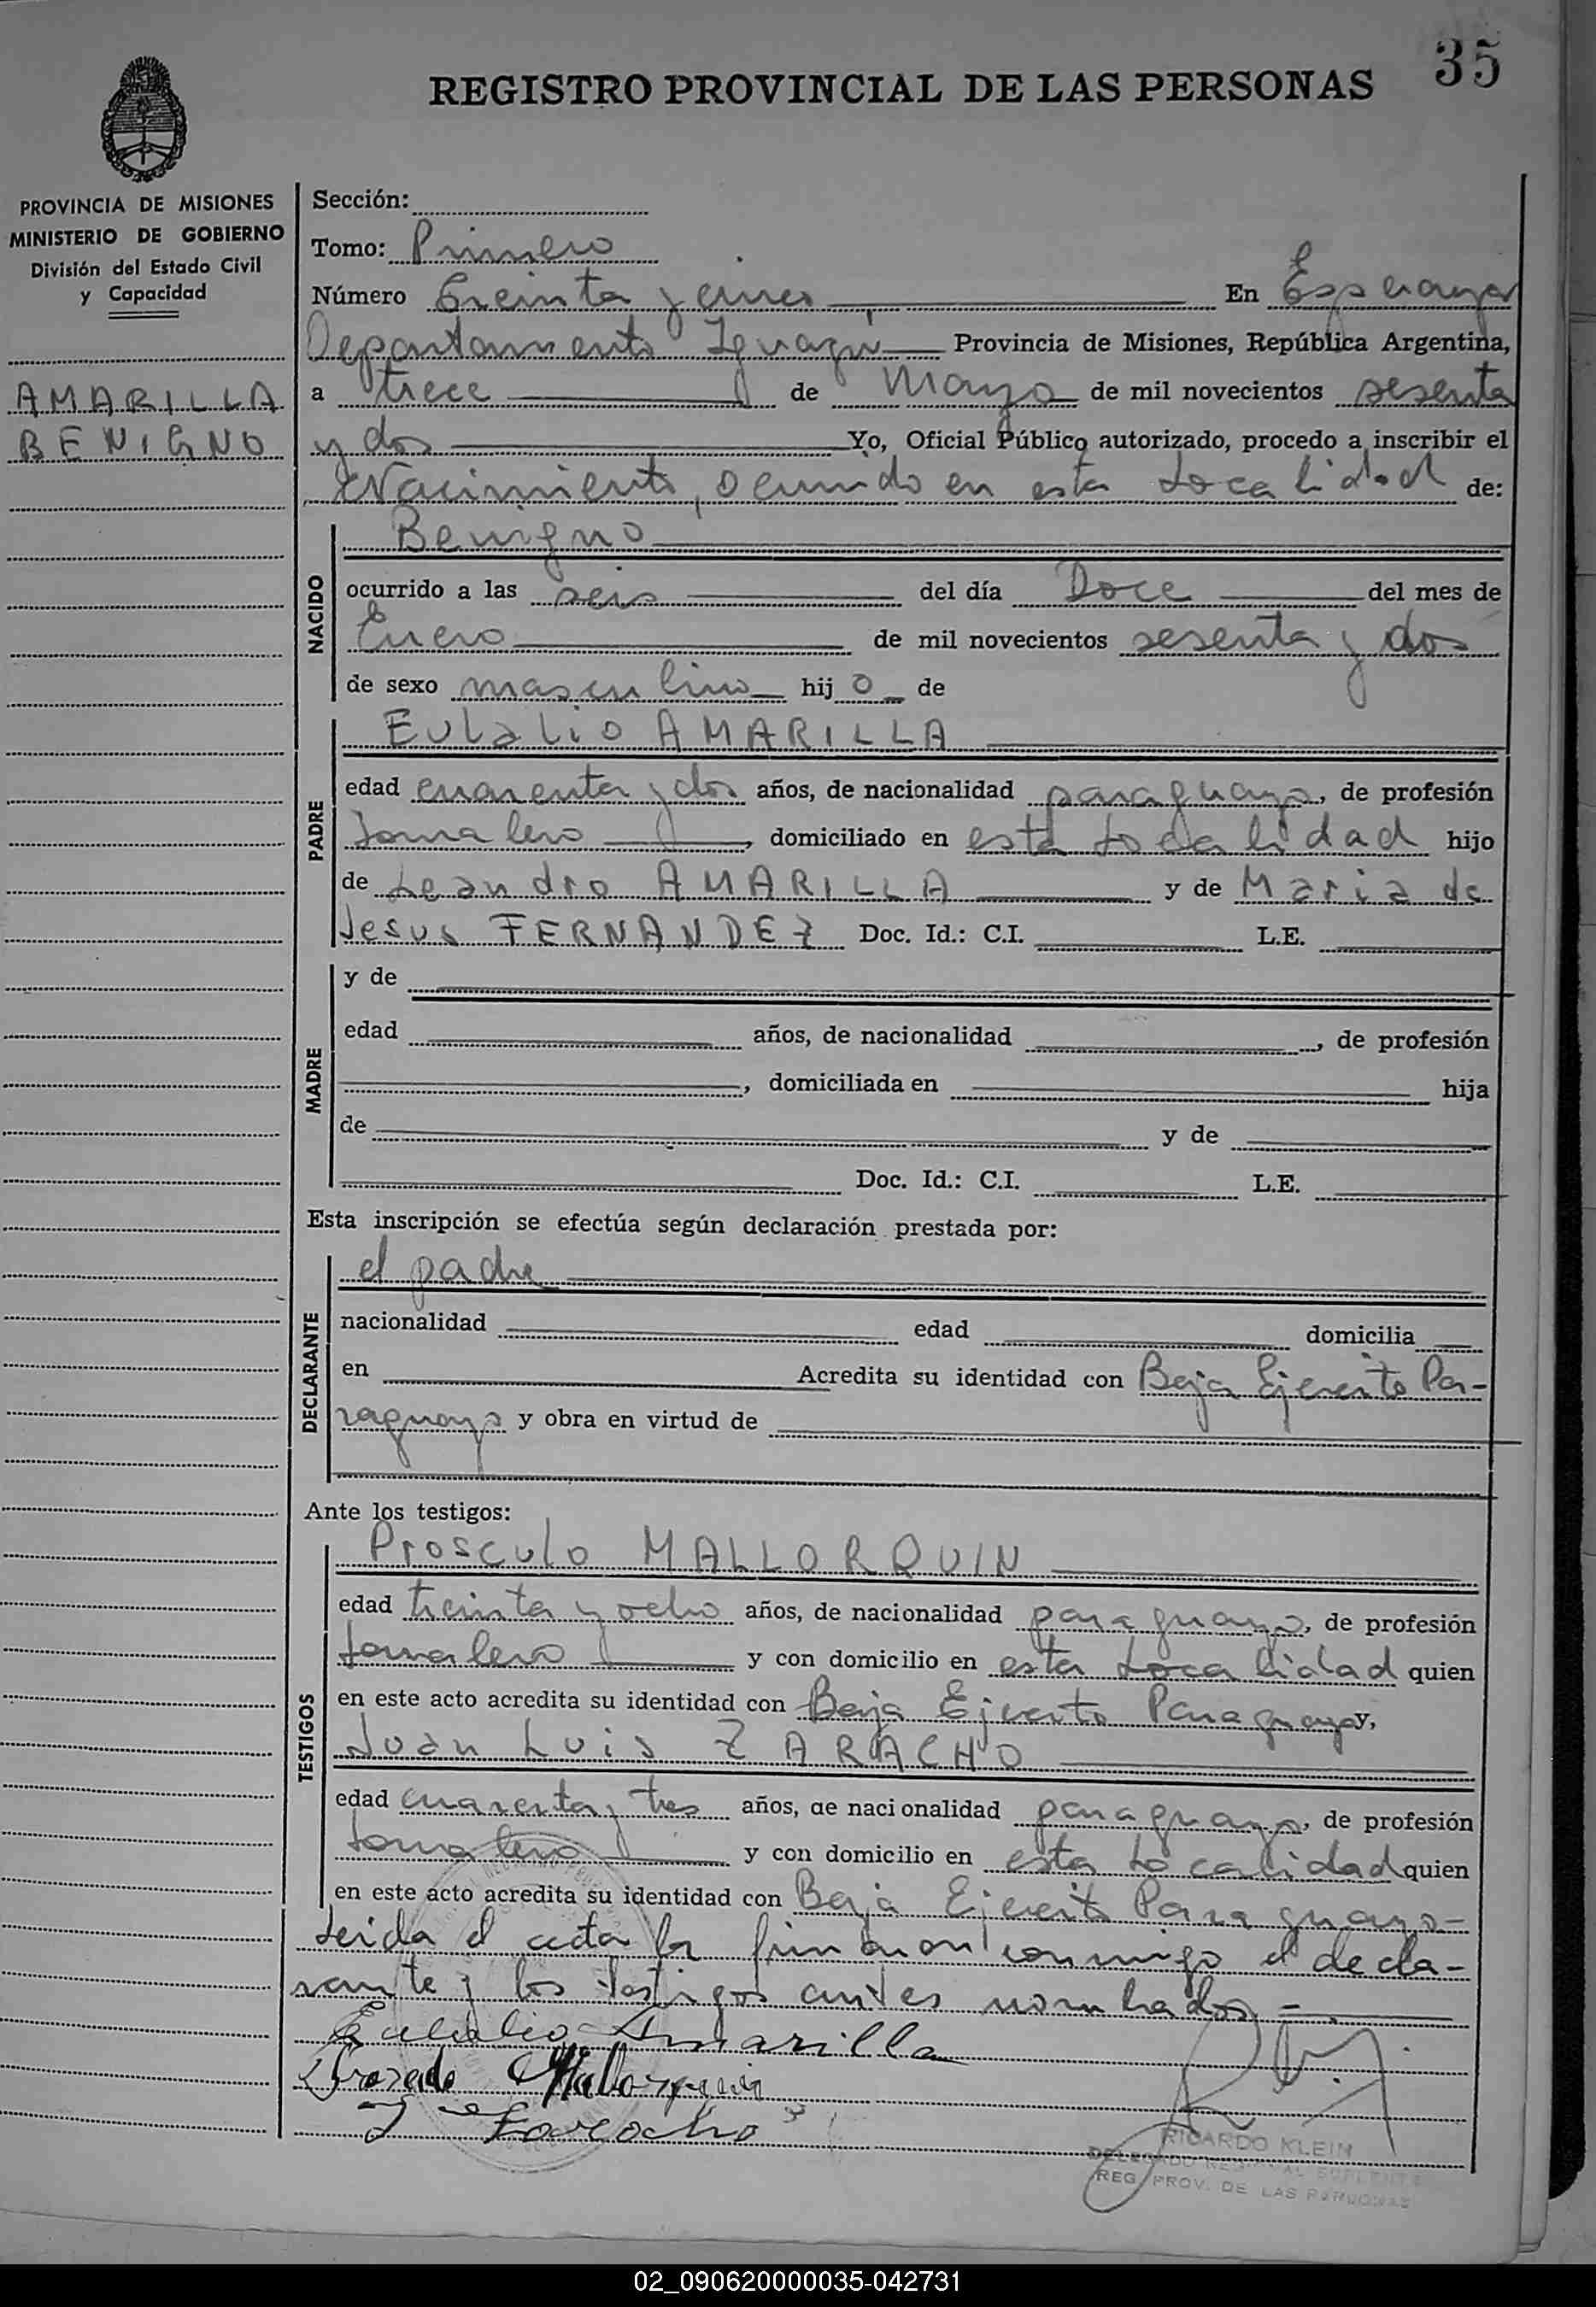 35
REGISTRO PROVINCIAL DE LAS PERSONAS
PROVINCIA DE MISIONES
MINISTERIO DE GOBIERNO
División del Estado Civil
y Capacidad
AMARILLA
BENIGNO
Sección:
Tomo: Primero
Número Treinta y cinco En Esperanza
Departamento Iguazú Provincia de Misiones, República Argentina,
a trece de Mayo de mil novecientos sesenta
y dos Yo, Oficial Público autorizado, procedo a inscribir el
Nacimiento, ocurrido en esta Localidad de:
NACIDO
Benigno
ocurrido a las seis del día Doce del mes de
Enero de mil novecientos sesenta y dos
de sexo masculino hijo de
PADRE
Eulalio AMARILLA
edad cuarenta y dos años, de nacionalidad paraguayo, de profesión
Jornalero, domiciliado en esta Localidad hijo
de Leandro AMARILLA y de Maria de
Jesus FERNANDEZ Doc. Id.: C.I. L.E.
MADRE
y de
edad años, de nacionalidad , de profesión
, domiciliada en hija
de y de
Doc. Id.: C.I. L.E.
Esta inscripción se efectúa según declaración prestada por:
DECLARANTE
el padre
nacionalidad edad domicilia
en Acredita su identidad con Baja Ejercito Pa-
raguayo y obra en virtud de
Ante los testigos:
TESTIGOS
Prosculo MALLORQUIN
edad treinta y ocho años, de nacionalidad paraguayo, de profesión
Jornalero y con domicilio en esta Localidad quien
en este acto acredita su identidad con Baja Ejercito Paraguayo y,
Juan Luis ZARACHO
edad cuarenta y tres años, de nacionalidad paraguayo, de profesión
Jornalero y con domicilio en esta Localidad quien
en este acto acredita su identidad con Baja Ejercito Paraguayo-
Leida el acta la firmaron conmigo el decla-
rante y los testigos antes nombrados=
Eulalio Amarilla
Mallorquin
Zaracho
RICARDO KLEIN
DELEGADO SUPLENTE
REG. PROV. DE LAS PERSONAS
02_090620000035-042731